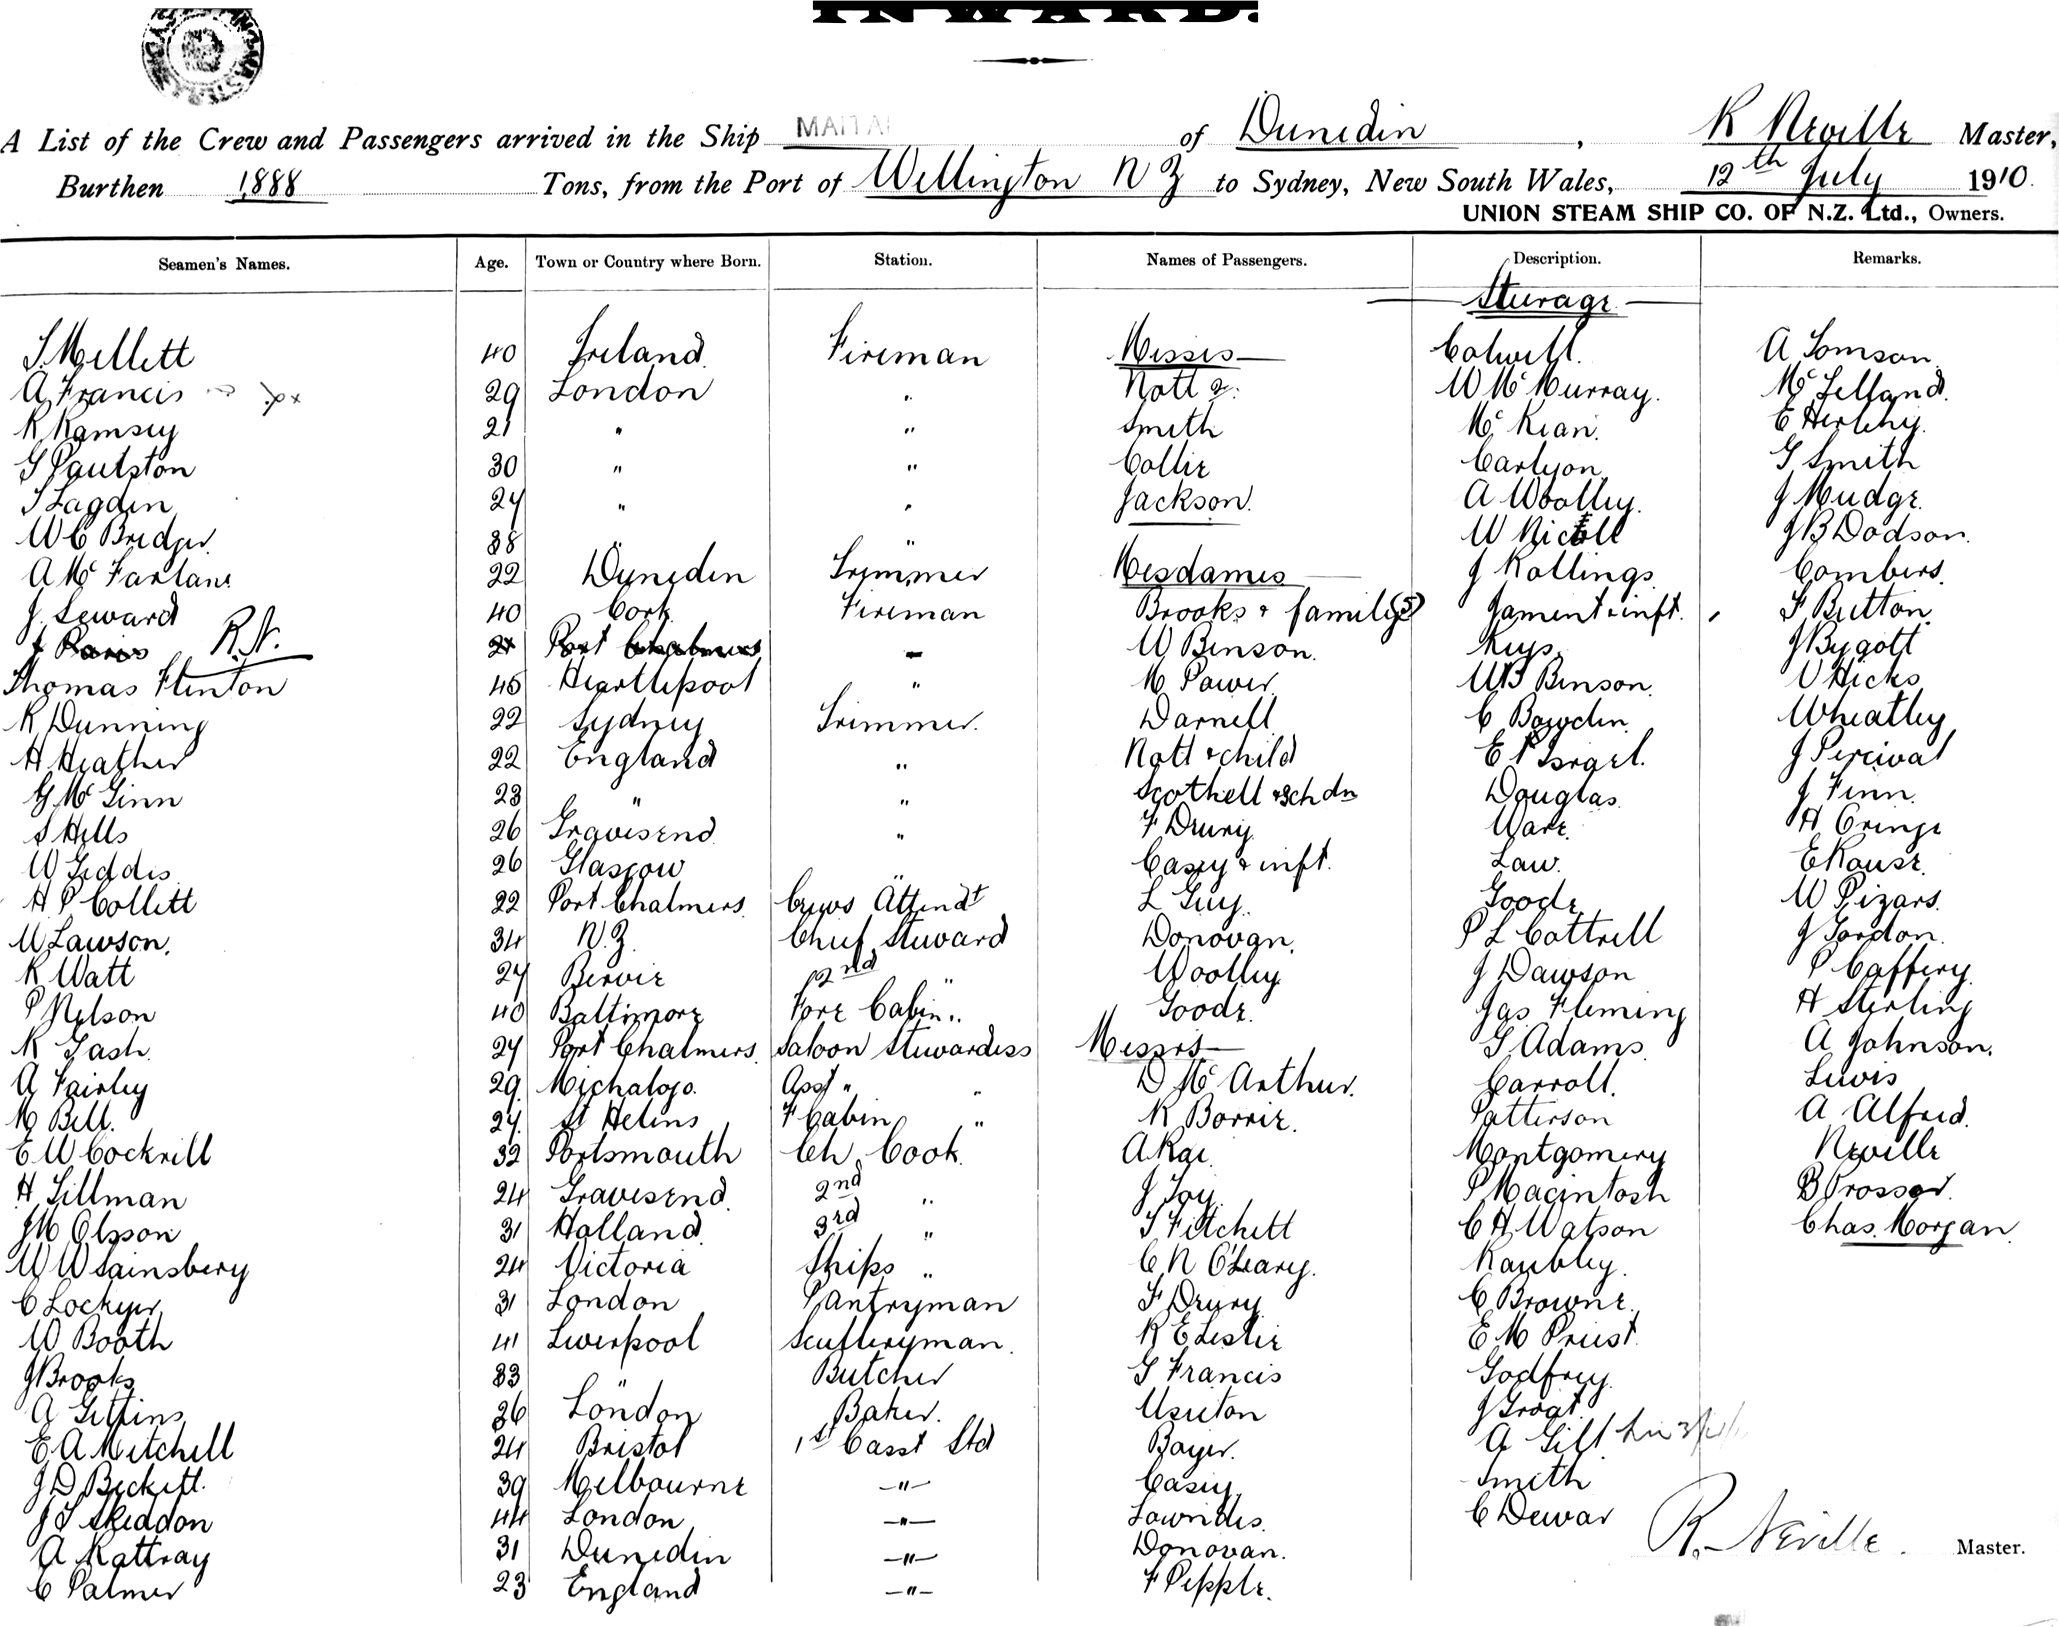 INWARD.
A List of the Crew and Passengers arrived in the Ship MAITAI of Dunedin, R Neville Master,
Burthen 1888 Tons, from the Port of Wellington N Z to Sydney, New South Wales, 12th July 1910.
UNION STEAM SHIP CO. OF N.Z. Ltd., Owners.
Seamen's Names. Age. Town or Country where Born. Station. Names of Passengers. Description. Remarks.
Steerage
Mellett 40 Ireland. Fireman Misses Colwell. A Tomson.
A Francis 29 London " Nott 2. W McMurray. McLelland.
R Ramsey 21 " " Smith McKean. E Herlihy.
G Paulston 30 " " Collie Carlyon G Smith
Lagden 24 " " Jackson. A Woolley. J Mudge.
W C Bridger. 38 " " W Nicoll J B Dodson.
A McFarlane 22 Dunedin Trimmer Mesdames J Rollings Combers.
J Seward 40 Cork Fireman Brooks & family (5) Jament & inft. F Button.
R.N. Port Chalmers W Benson. Keys. J Bygott
Thomas Flinton 45 Heartlepool " M Power W B Benson. Hicks
R Dunning 22 Sydney Trimmer. Darnell C Bowden. Wheatley
H Heather 22 England " Nott & child E P Israel. J Percival
G McGinn 23 " " Scothell & 3 chdn Douglas. J Finn.
S Hills 26 Gravesend " F Drury Ware. H Cringe
W Geddis 26 Glasgow " Casey & inft. Law. E Rouse.
H P Collett 22 Port Chalmers. Crews Attendt L Guy. Goode W Pizars.
W Lawson. 34 N.Z. Chief Steward Donovan. P L Cottrell J Gordon.
R Watt 27 Bervie 2nd " Woolley J Dawson P Caffery
P Nelson 40 Baltimore Fore Cabin " Goode. Jas Fleming H Sterling
R Gash. 27 Port Chalmers. Saloon Stewardess Messrs G Adams A Johnson.
A Fairley 29 Asst " " D McArthur. Carroll. Lewis
M Bell. 27 St Helens F Cabin " R Borrie. Patterson A Alfred.
E W Cockrill 32 Portsmouth Ch Cook. A Rae. Montgomery Neville
H Tillman 24 Gravesend. 2nd " J Joy. P Macintosh B Prosser.
J M Olsson 31 Holland. 3rd " Fitchett C H Watson Chas. Morgan.
W W Sainsbery 24 Victoria Ships " C N O'Leary. Raubley.
C Lockyer 31 London Pantryman F Drury C Browne.
W Booth 41 Liverpool Sculleryman. R E Leslie E M Priest.
J Brooks 33 " Butcher G Francis Godfrey.
A Gittins 36 London Baker. Usuton J Groat.
E A Mitchell 24 Bristol 1st Casst Std Boyer. A Gill
J D Beckett. 39 Melbourne " Casey. Smith
J S Skeddon 44 London " Lowndes. C Dewar
A Rattray 31 Dunedin " Donovan. R. Neville. Master.
C Palmer 23 England " F Pepple.